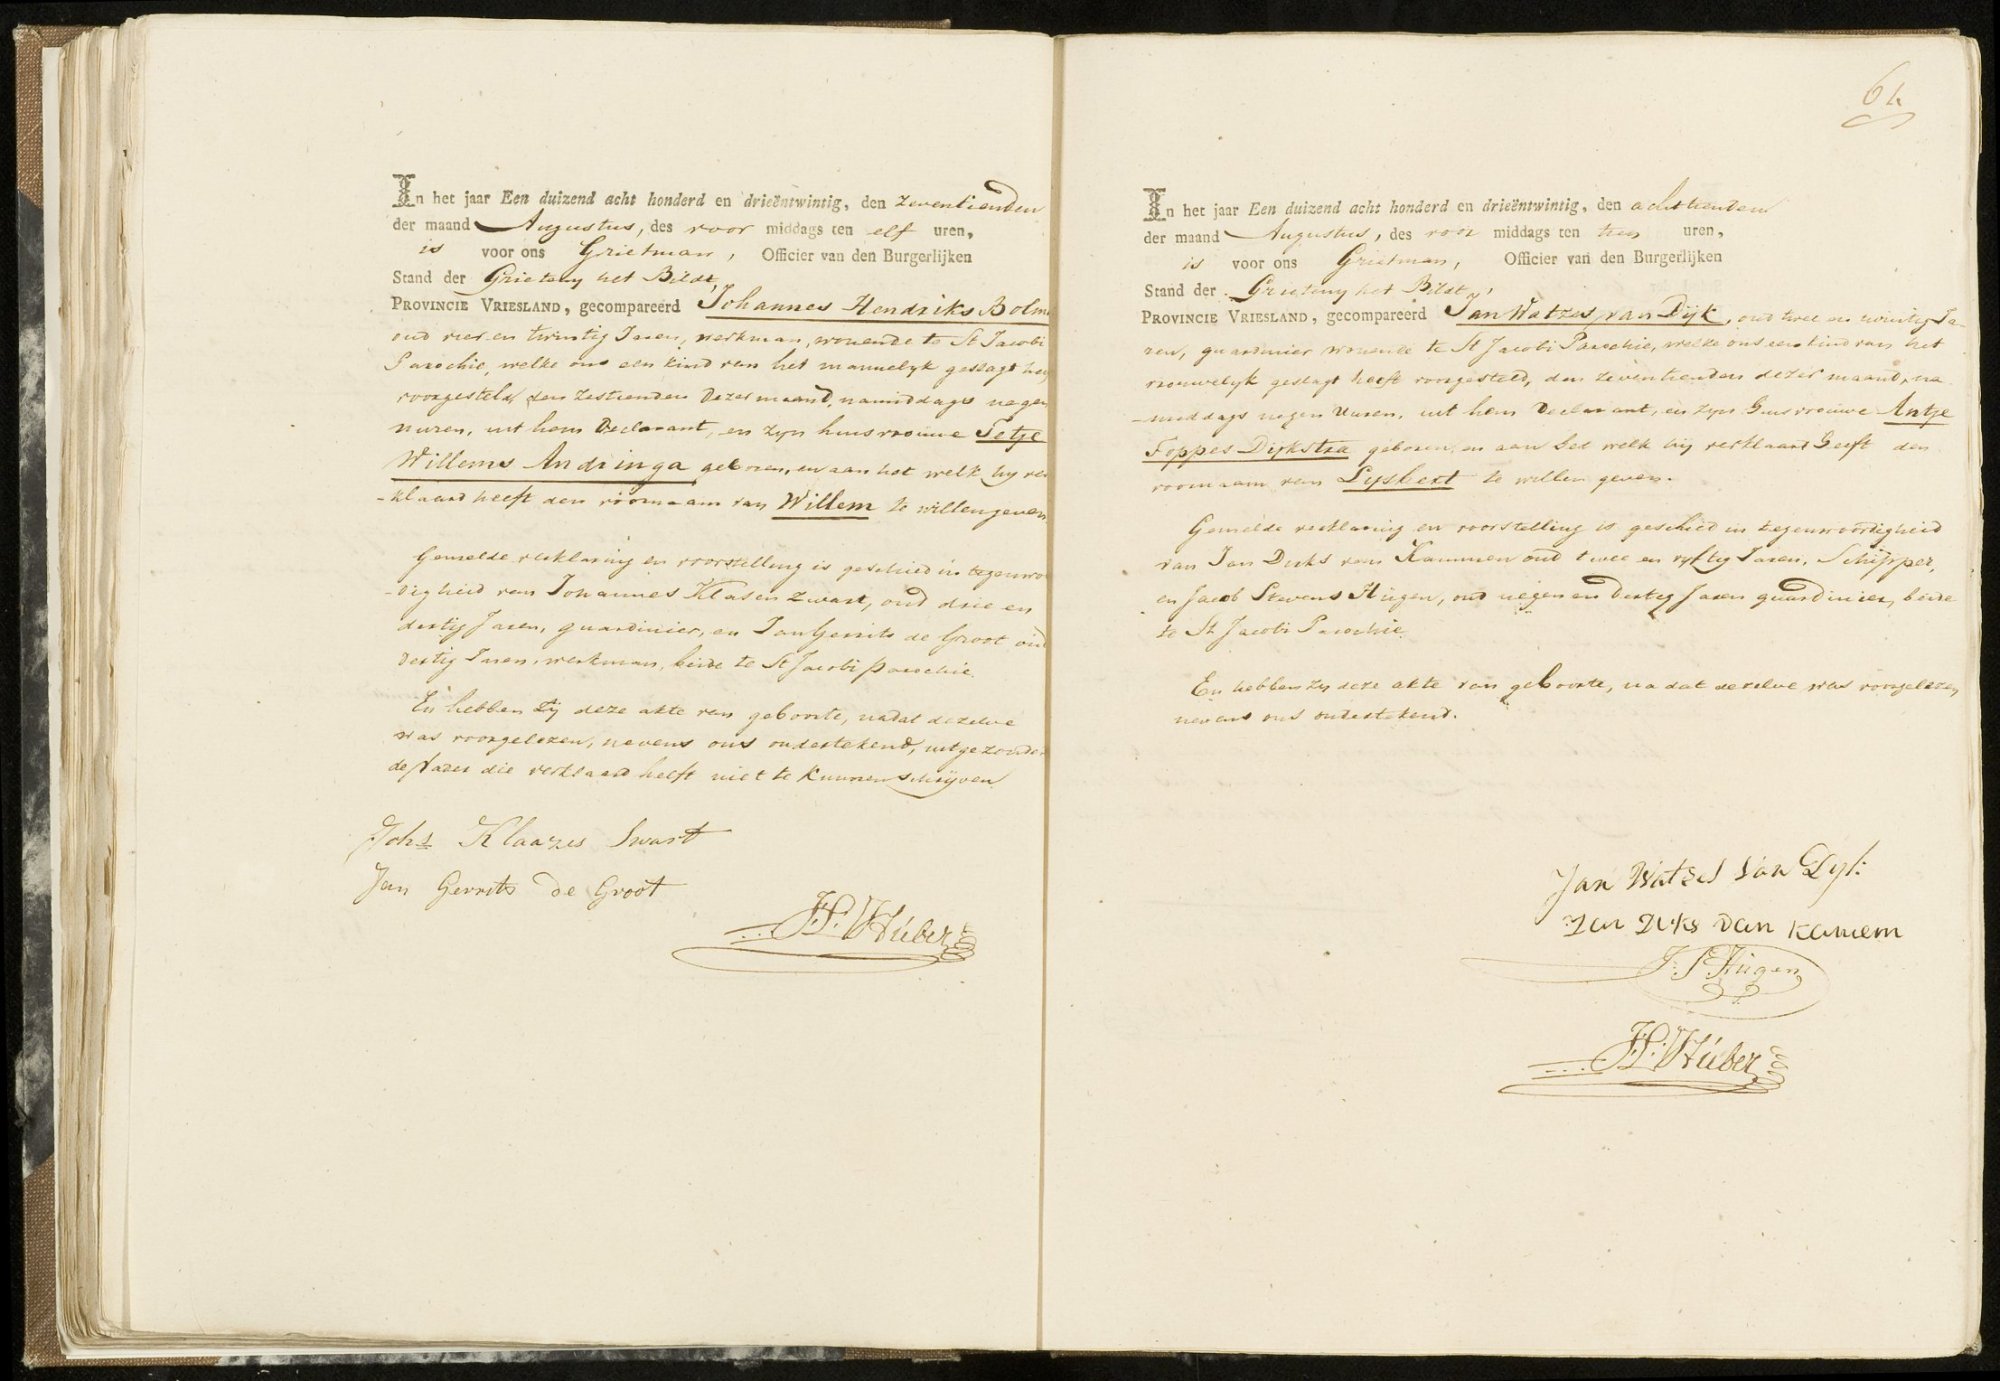 In het jaar Een duizend acht honderd en drieëntwintig, den zeventienden
der maand Augustus, des voor middags ten elf uren,
is voor ons Grietman, Officier van den Burgerlijken
Stand der Grieteny het Bildt,
PROVINCIE VRIESLAND, gecompareerd Johannes Hendriks Bolm
oud vier en twintig Jaren, werkman, wonende te St Jacobi
Parochie, welke ons een kind van het mannelyk geslagt
voorgesteld den zestienden dezer maand, namiddags negen
uuren, uit hem Declarant, en zyn huisvrouwe Tetje
Willems Andringa geboren, en aan het welk hy ver
-klaard heeft den voornaam van Willem te willen geven
Gemelde verklaring en voorstelling is geschied in tegenwo
-digheid van Johannes Klasen Zwart, oud drie en
dertig Jaren, guardinier, en Jan Gerrits de Groot oud
dertig Jaren, werkman, beide te St Jacobi parochie.
En hebben zij deze akte van geboorte, nadat dezelve
was voorgelezen, nevens ons ondertekend, uitgezonder
de Vader die verklaard heeft niet te kunnen schrijven
Johs Klaazes Swart
Jan Gerrits de Groot
Huber
64
In het jaar Een duizend acht honderd en drieëntwintig, den achttienden
der maand Augustus, des voor middags ten tien uren,
is voor ons Grietman, Officier van den Burgerlijken
Stand der Grieteny het Bildt,
PROVINCIE VRIESLAND, gecompareerd Jan Watzes van Dijk, oud twee en twintig Ja-
ren, guardinier wonende te St Jacobi Parochie, welke ons een kind van het
vrouwelyk geslagt heeft voorgesteld, den zeventienden dezer maand, na
-middags negen Uuren, uit hem Declarant, en zyn huisvrouwe Antje
Foppes Dijkstra geboren, en aan het welk hij verklaard heeft den
voornaam van Lysbert te willen geven.
Gemelde verklaring en voorstelling is geschied in tegenwoordigheid
van Jan Dirks van Kammen oud twee en vyftig Jaren, Schipper,
en Jacob Stevens Hugen, oud negen en dertig Jaren guardinier, beide
te St Jacobi Parochie.
En hebben zy deze akte van geboorte, na dat dezelve was voorgelezen,
nevens ons ondertekend.
Jan Watzes van Dyk
Jan Dirks van Kamem
J. S. Hugen
Huber